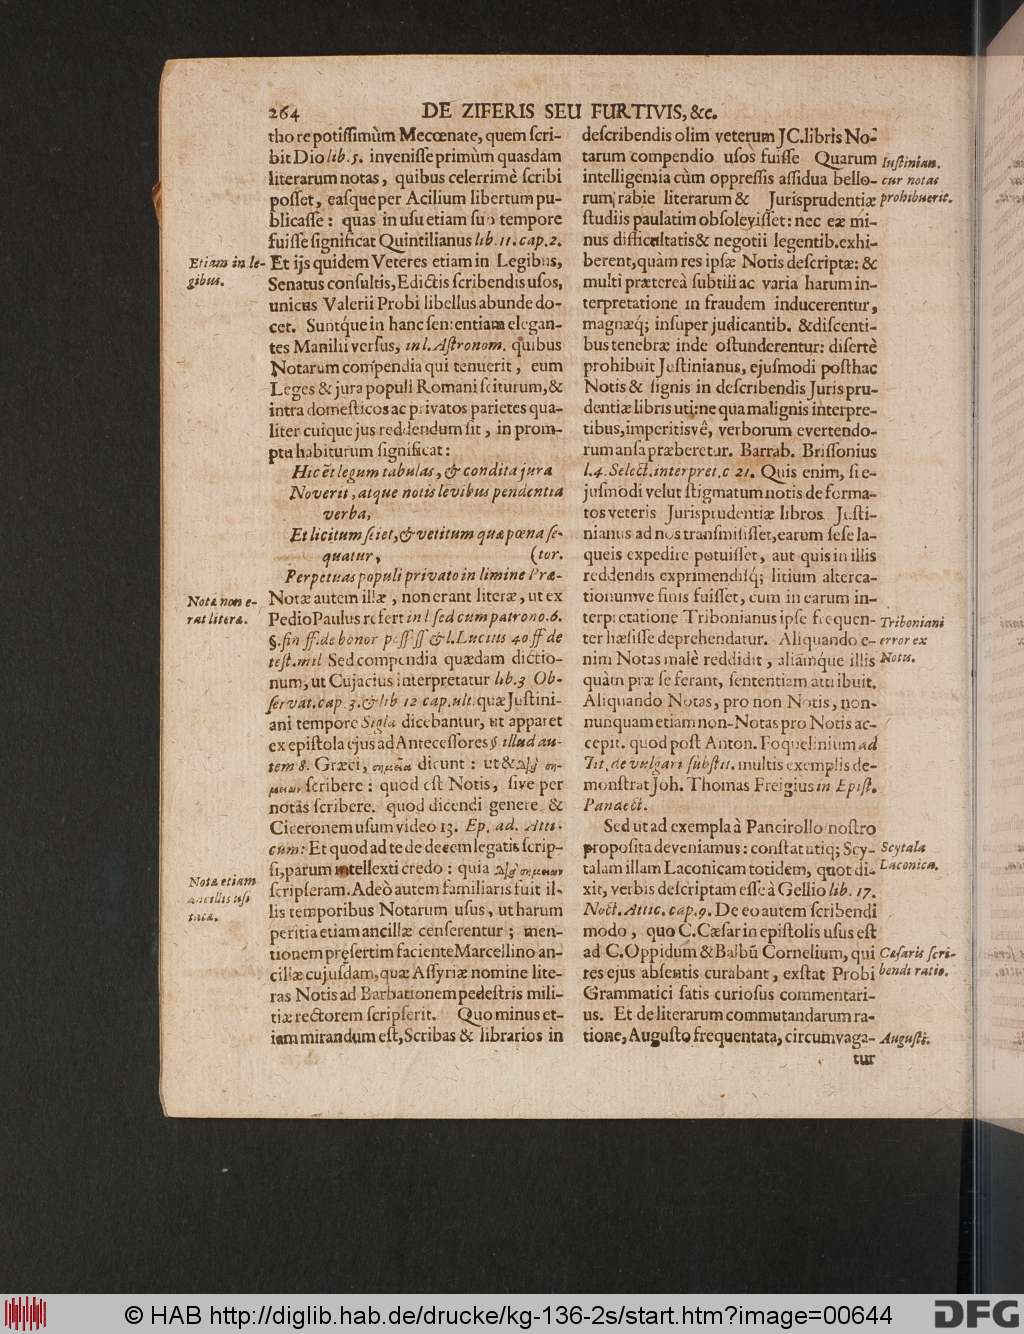 264
DE ZIFERIS SEU FURTIVIS, &c.
thore potissimùm Mecœnate, quem scri-
bit Dio lib. 5. invenisse primùm quasdam
literarum notas, quibus celerrimè scribi
posset, easque per Acilium libertum pu-
blicasse: quas in usu etiam suo tempore
fuisse significat Quintilianus lib. 11. cap. 2.
Etiam in le-
gibus.
Et ijs quidem Veteres etiam in Legibus,
Senatus consultis, Edictis scribendis usos,
unicus Valerii Probi libellus abunde do-
cet. Suntq́ue in hanc sententiam elegan-
tes Manilii versus, in l. Astronom. quibus
Notarum compendia qui tenuerit, eum
Leges & jura populi Romani sciturum, &
intra domesticos ac privatos parietes qua-
liter cuique jus reddendum sit, in prom-
ptu habiturum significat:
Hic et legum tabulas, & condita jura
Noverit, atque notis levibus pendentia
verba,
Et licitum sciet, & vetitum quæ pœna se-
quatur, (tor.
Perpetuas populi privato in limine Præ-
Nota non e-
rat litera.
Notæ autem illæ, non erant literæ, ut ex
Pedio Paulus refert in l sed cum patrono. 6.
§. fin ff. de bonor poss ff & l. Lucius 40 ff de
test. mil Sed compendia quædam dictio-
num, ut Cujacius interpretatur lib. 3 Ob-
servat. cap. 3. & lib 12 cap. ult. quæ Justini-
ani tempore Sigla dicebantur, ut apparet
ex epistola ejus ad Antecessores § illud au-
tem 8. Græci, σημεῖα dicunt: ut & διὰ ση-
μείων scribere: quod est Notis, sive per
notàs scribere. quod dicendi genere &
Ciceronem usum video 13. Ep. ad. Atti-
cum: Et quod ad te de decem legatis scrip-
si, parum intellexti credo: quia διὰ σημείων
Nota etiam
ancillis usi
tata.
scripseram. Adeò autem familiaris fuit il-
lis temporibus Notarum usus, ut harum
peritia etiam ancillæ censerentur; men-
tionem præsertim faciente Marcellino an-
cillæ cujusdam, quæ Assyriæ nomine lite-
ras Notis ad Barbationem pedestris mili-
tiæ rectorem scripserit. Quo minus et-
iam mirandum est, Scribas & librarios in
describendis olim veterum JC. libris No-
tarum compendio usos fuisse Quarum
Iustinian.
cur notas
prohibuerit.
intelligentia cùm oppressis assidua bello-
rum rabie literarum & Jurisprudentiæ
studiis paulatim obsolevisset: nec eæ mi-
nus difficultatis & negotii legentib. exhi-
berent, quàm res ipsæ Notis descriptæ: &
multi prætereà subtili ac varia harum in-
terpretatione in fraudem inducerentur,
magnæq́; insuper judicantib. & discenti-
bus tenebræ inde offunderentur: disertè
prohibuit Justinianus, ejusmodi posthac
Notis & signis in describendis Jurispru-
dentiæ libris uti: ne qua malignis interpre-
tibus, imperitisvè, verborum evertendo-
rum ansa præberetur. Barrab. Brissonius
l. 4. Select. interpret. c 21. Quis enim, si e-
jusmodi velut stigmatum notis deforma-
tos veteris Jurisprudentiæ libros Justi-
nianus ad nos transmisisset, earum sese la-
queis expedire potuisset, aut quis in illis
reddendis exprimendisq́; litium alterca-
tionumve finis fuisset, cum in earum in-
Triboniani
error ex
Notis.
terpretatione Tribonianus ipse frequen-
ter hæsisse deprehendatur. Aliquando e-
nim Notas malè reddidit, aliàmque illis
quàm præ se ferant, sententiam attribuit.
Aliquando Notas, pro non Notis, non-
nunquam etiam non-Notas pro Notis ac-
cepit. quod post Anton. Foquelinium ad
Tit. de vulgari substit. multis exemplis de-
monstrat Joh. Thomas Freigius in Epist.
Panaect.
Sed ut ad exempla à Pancirollo nostro
Scytala
Laconica.
proposita deveniamus: constat utiq; Scy-
talam illam Laconicam totidem, quot di-
xit, verbis descriptam esse à Gellio lib. 17.
Noct. Attic. cap. 9. De eo autem scribendi
modo, quo C. Cæsar in epistolis usus est
Cæsaris scri-
bendi ratio.
ad C. Oppidum & Balbū Cornelium, qui
res ejus absentis curabant, exstat Probi
Grammatici satis curiosus commentari-
us. Et de literarum commutandarum ra-
Augusti.
tione, Augusto frequentata, circumvaga-
tur
© HAB http://diglib.hab.de/drucke/kg-136-2s/start.htm?image=00644
DFG